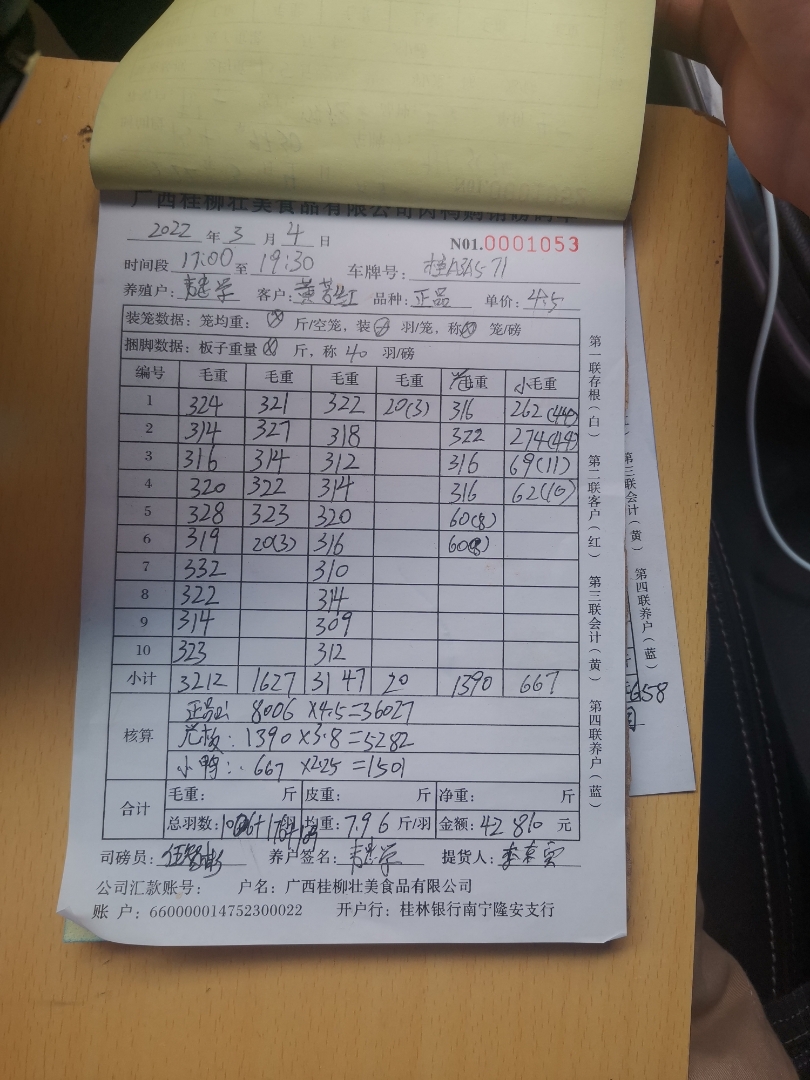 广西桂柳壮美食品有限公司肉鸭购销磅码单
2022 年 3 月 4 日 N01.0001053
时间段 17:00 至 19:30 车牌号:
养殖户: 客户: 黄 红 品种: 正品 单价: 4.5
装笼数据: 笼均重: 斤/空笼, 装 羽/笼, 称 笼/磅
捆脚数据: 板子重量 斤, 称 40 羽/磅
编号 毛重 毛重 毛重 毛重 重 小毛重
1 324 321 322 20(3) 316 262(44)
2 314 327 318 322 274(44)
3 316 314 312 316 69(11)
4 320 322 314 316 62(10)
5 328 323 320 60(8)
6 319 20(3) 316 60(8)
7 332 310
8 322 314
9 314 309
10 323 312
小计 3212 1627 3147 20 1390 667
核算
正品: 8006 ×4.5=36027
: 1390 ×3.8=5282
小鸭: 667 ×2.25 =1501
合计
毛重: 斤 皮重: 斤 净重: 斤
总羽数: 羽 均重: 7.96 斤/羽 金额: 42810 元
司磅员: 养户签名: 提货人:
公司汇款账号: 户名: 广西桂柳壮美食品有限公司
账 户: 660000014752300022 开户行: 桂林银行南宁隆安支行
第一联存根(白) 第二联客户(红) 第三联会计(黄) 第四联养户(蓝)
三联会计(黄) 第四联养户(蓝)
658